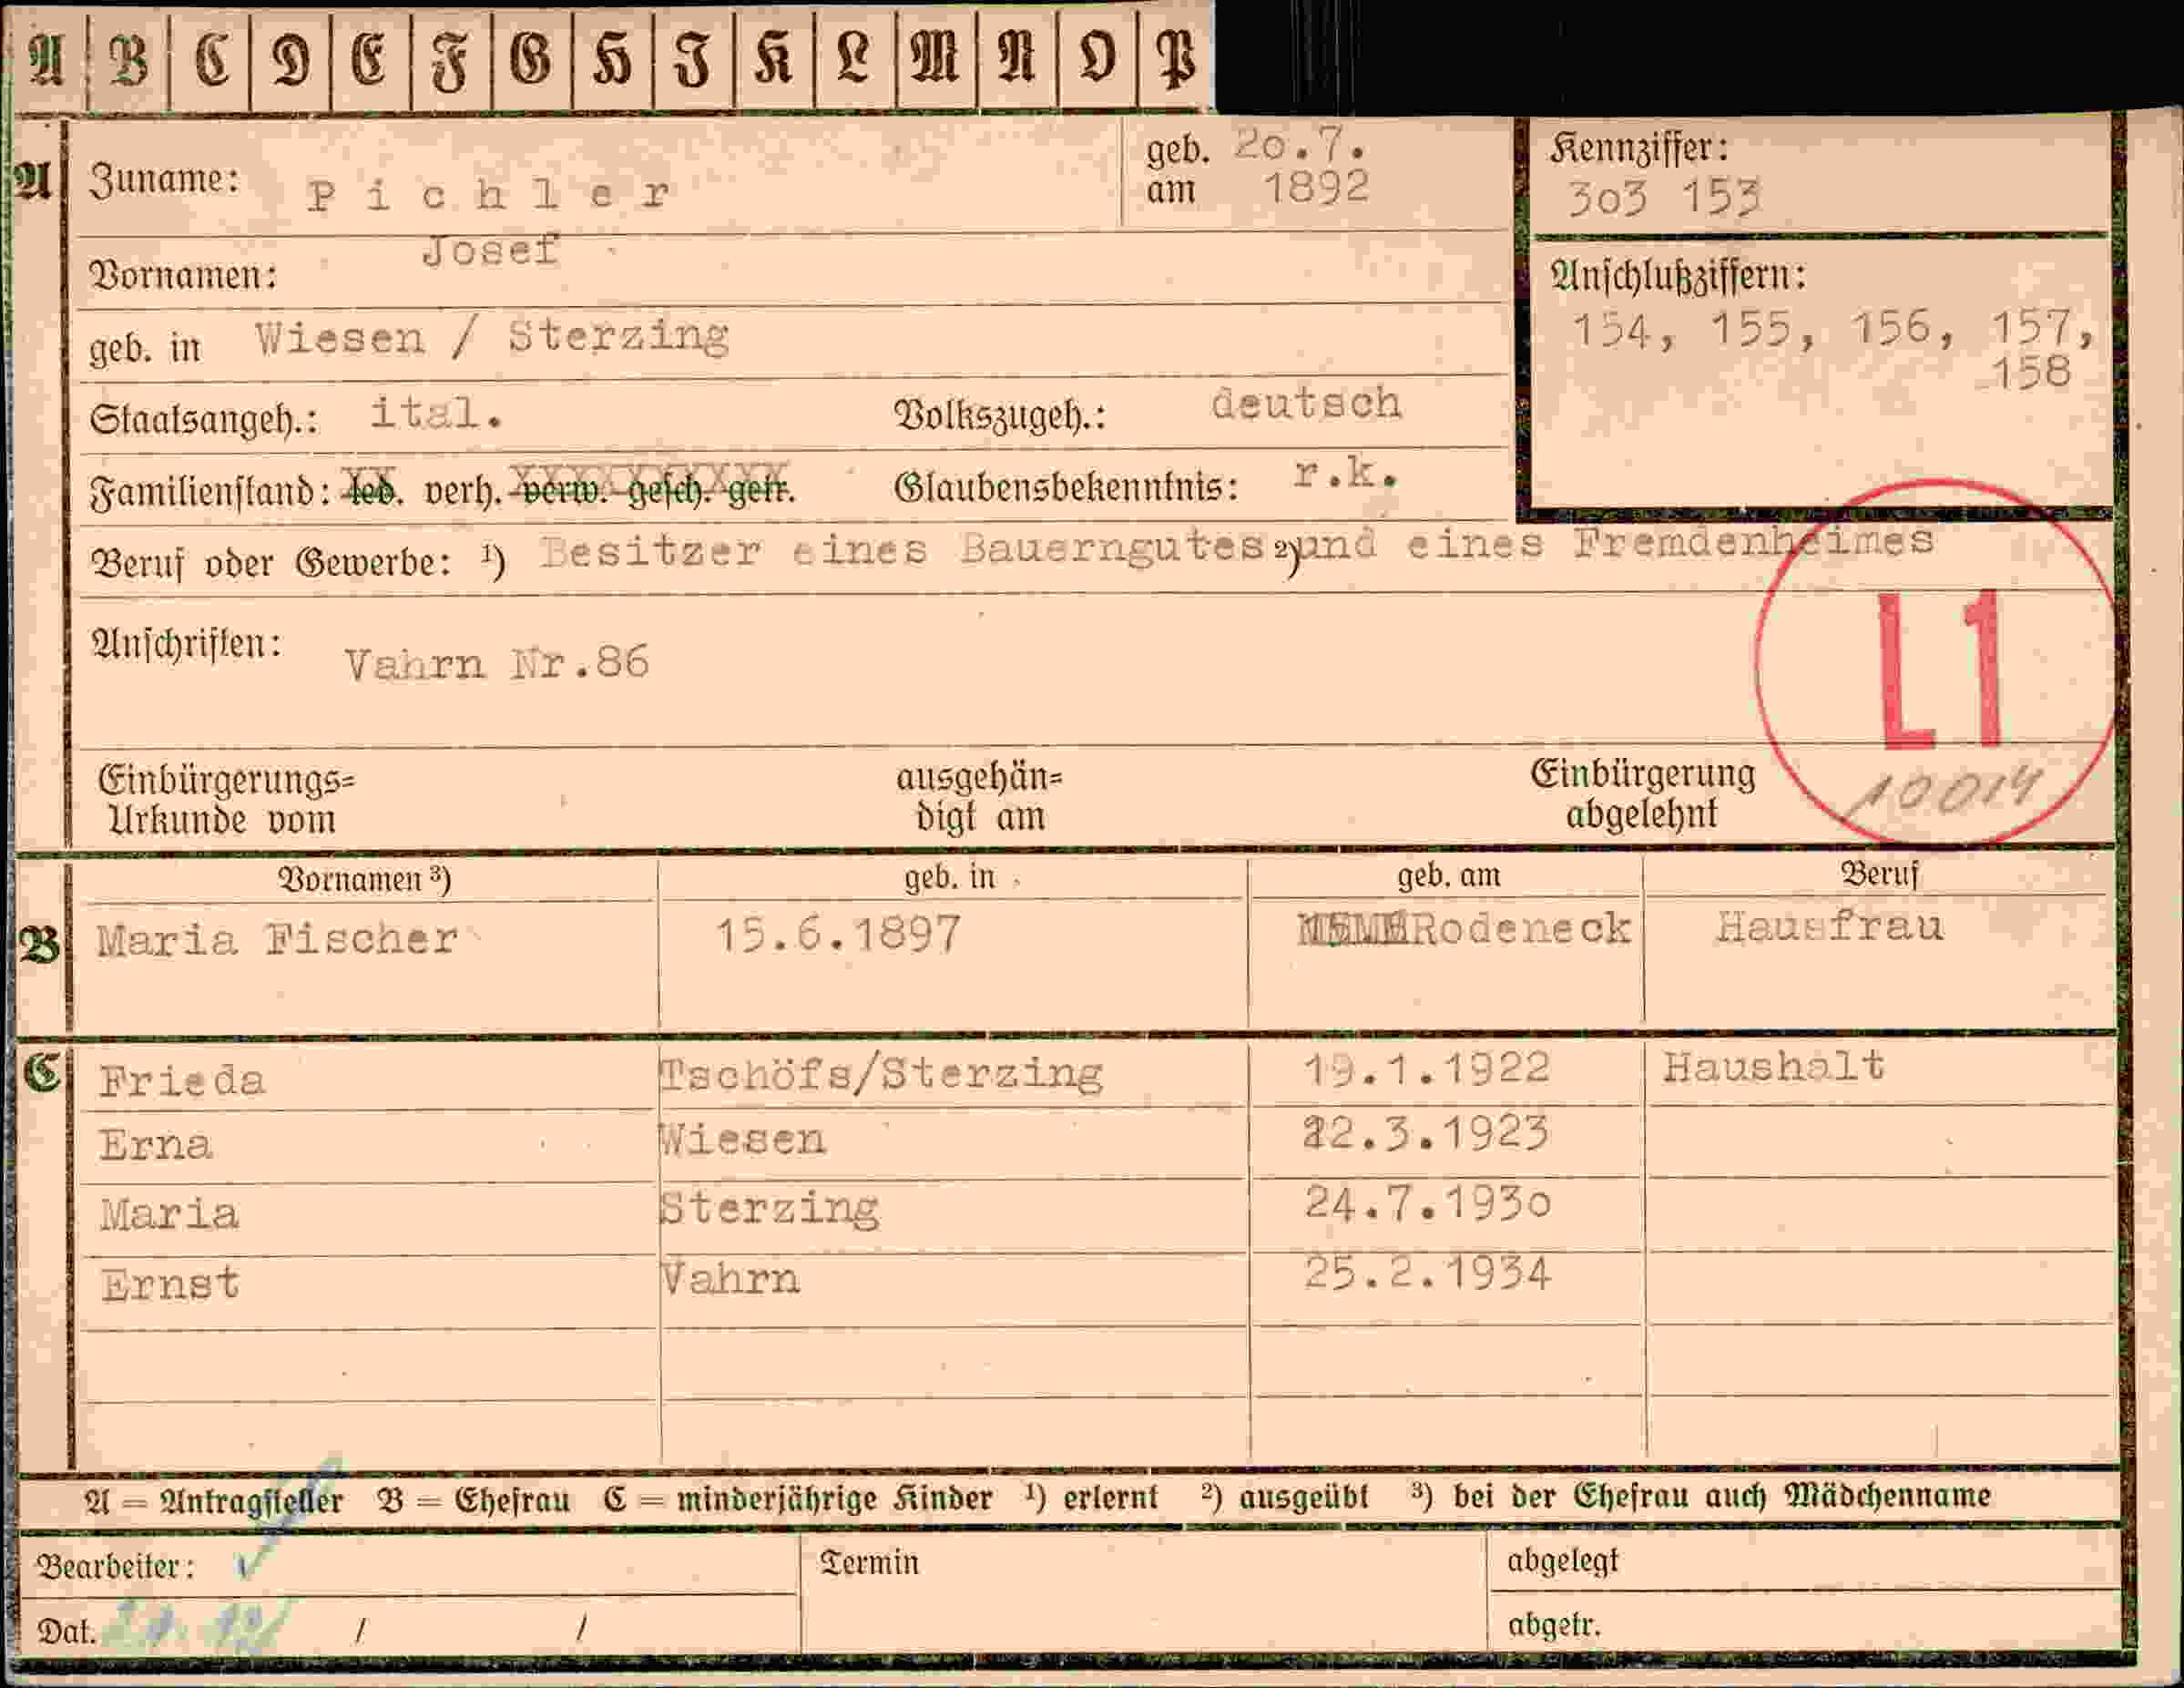 A B C D E F G H J K L M N O P
A Zuname: Pichler geb. am 20.7. 1892
Kennziffer: 303 153
Vornamen: Josef
Anschlußziffern: 154, 155, 156, 157, 158
geb. in Wiesen / Sterzing
Staatsangeh.: ital. Volkszugeh.: deutsch
Familienstand: led. verh. verw. gesch. getr. Glaubensbekenntnis: r.k.
Beruf oder Gewerbe: ¹) Besitzer eines Bauerngutes ²) und eines Fremdenheimes
Anschriften: Vahrn Nr.86
L1
10014
Einbürgerungs= ausgehän= Einbürgerung
Urkunde vom digt am abgelehnt
Vornamen ³) geb. in geb. am Beruf
B Maria Fischer 15.6.1897 Rodeneck Hausfrau
C Frieda Tschöfs/Sterzing 19.1.1922 Haushalt
Erna Wiesen .3.1923
Maria Sterzing 24.7.1930
Ernst Vahrn 25.2.1934
A = Antragsteller B = Ehefrau C = minderjährige Kinder ¹) erlernt ²) ausgeübt ³) bei der Ehefrau auch Mädchenname
Bearbeiter: Termin abgelegt
Dat. / / abgetr.